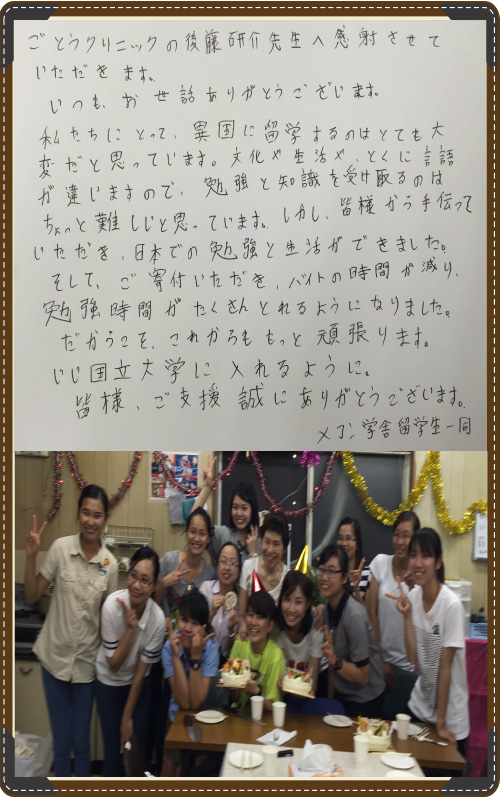 ごとうクリニックの後藤研介先生へ感射させて
いただきます。
いつも、お世話ありがとうございます。
私たちにとって、異国に留学するのはとても大
変だと思っています。文化や生活や、とくに言語
が違いますので、勉強と知識を受け取るのは
ちょっと難しいと思っています。しかし、皆様から手伝って
いただき、日本での勉強と生活ができました。
そして、ご寄付いただき、バイトの時間が減り、
勉強時間がたくさんとれるようになりました。
だからこそ、これからももっと頑張ります。
いい国立大学に入れるように。
皆様、ご支援誠にありがとうございます。
メコン学舎留学生一同